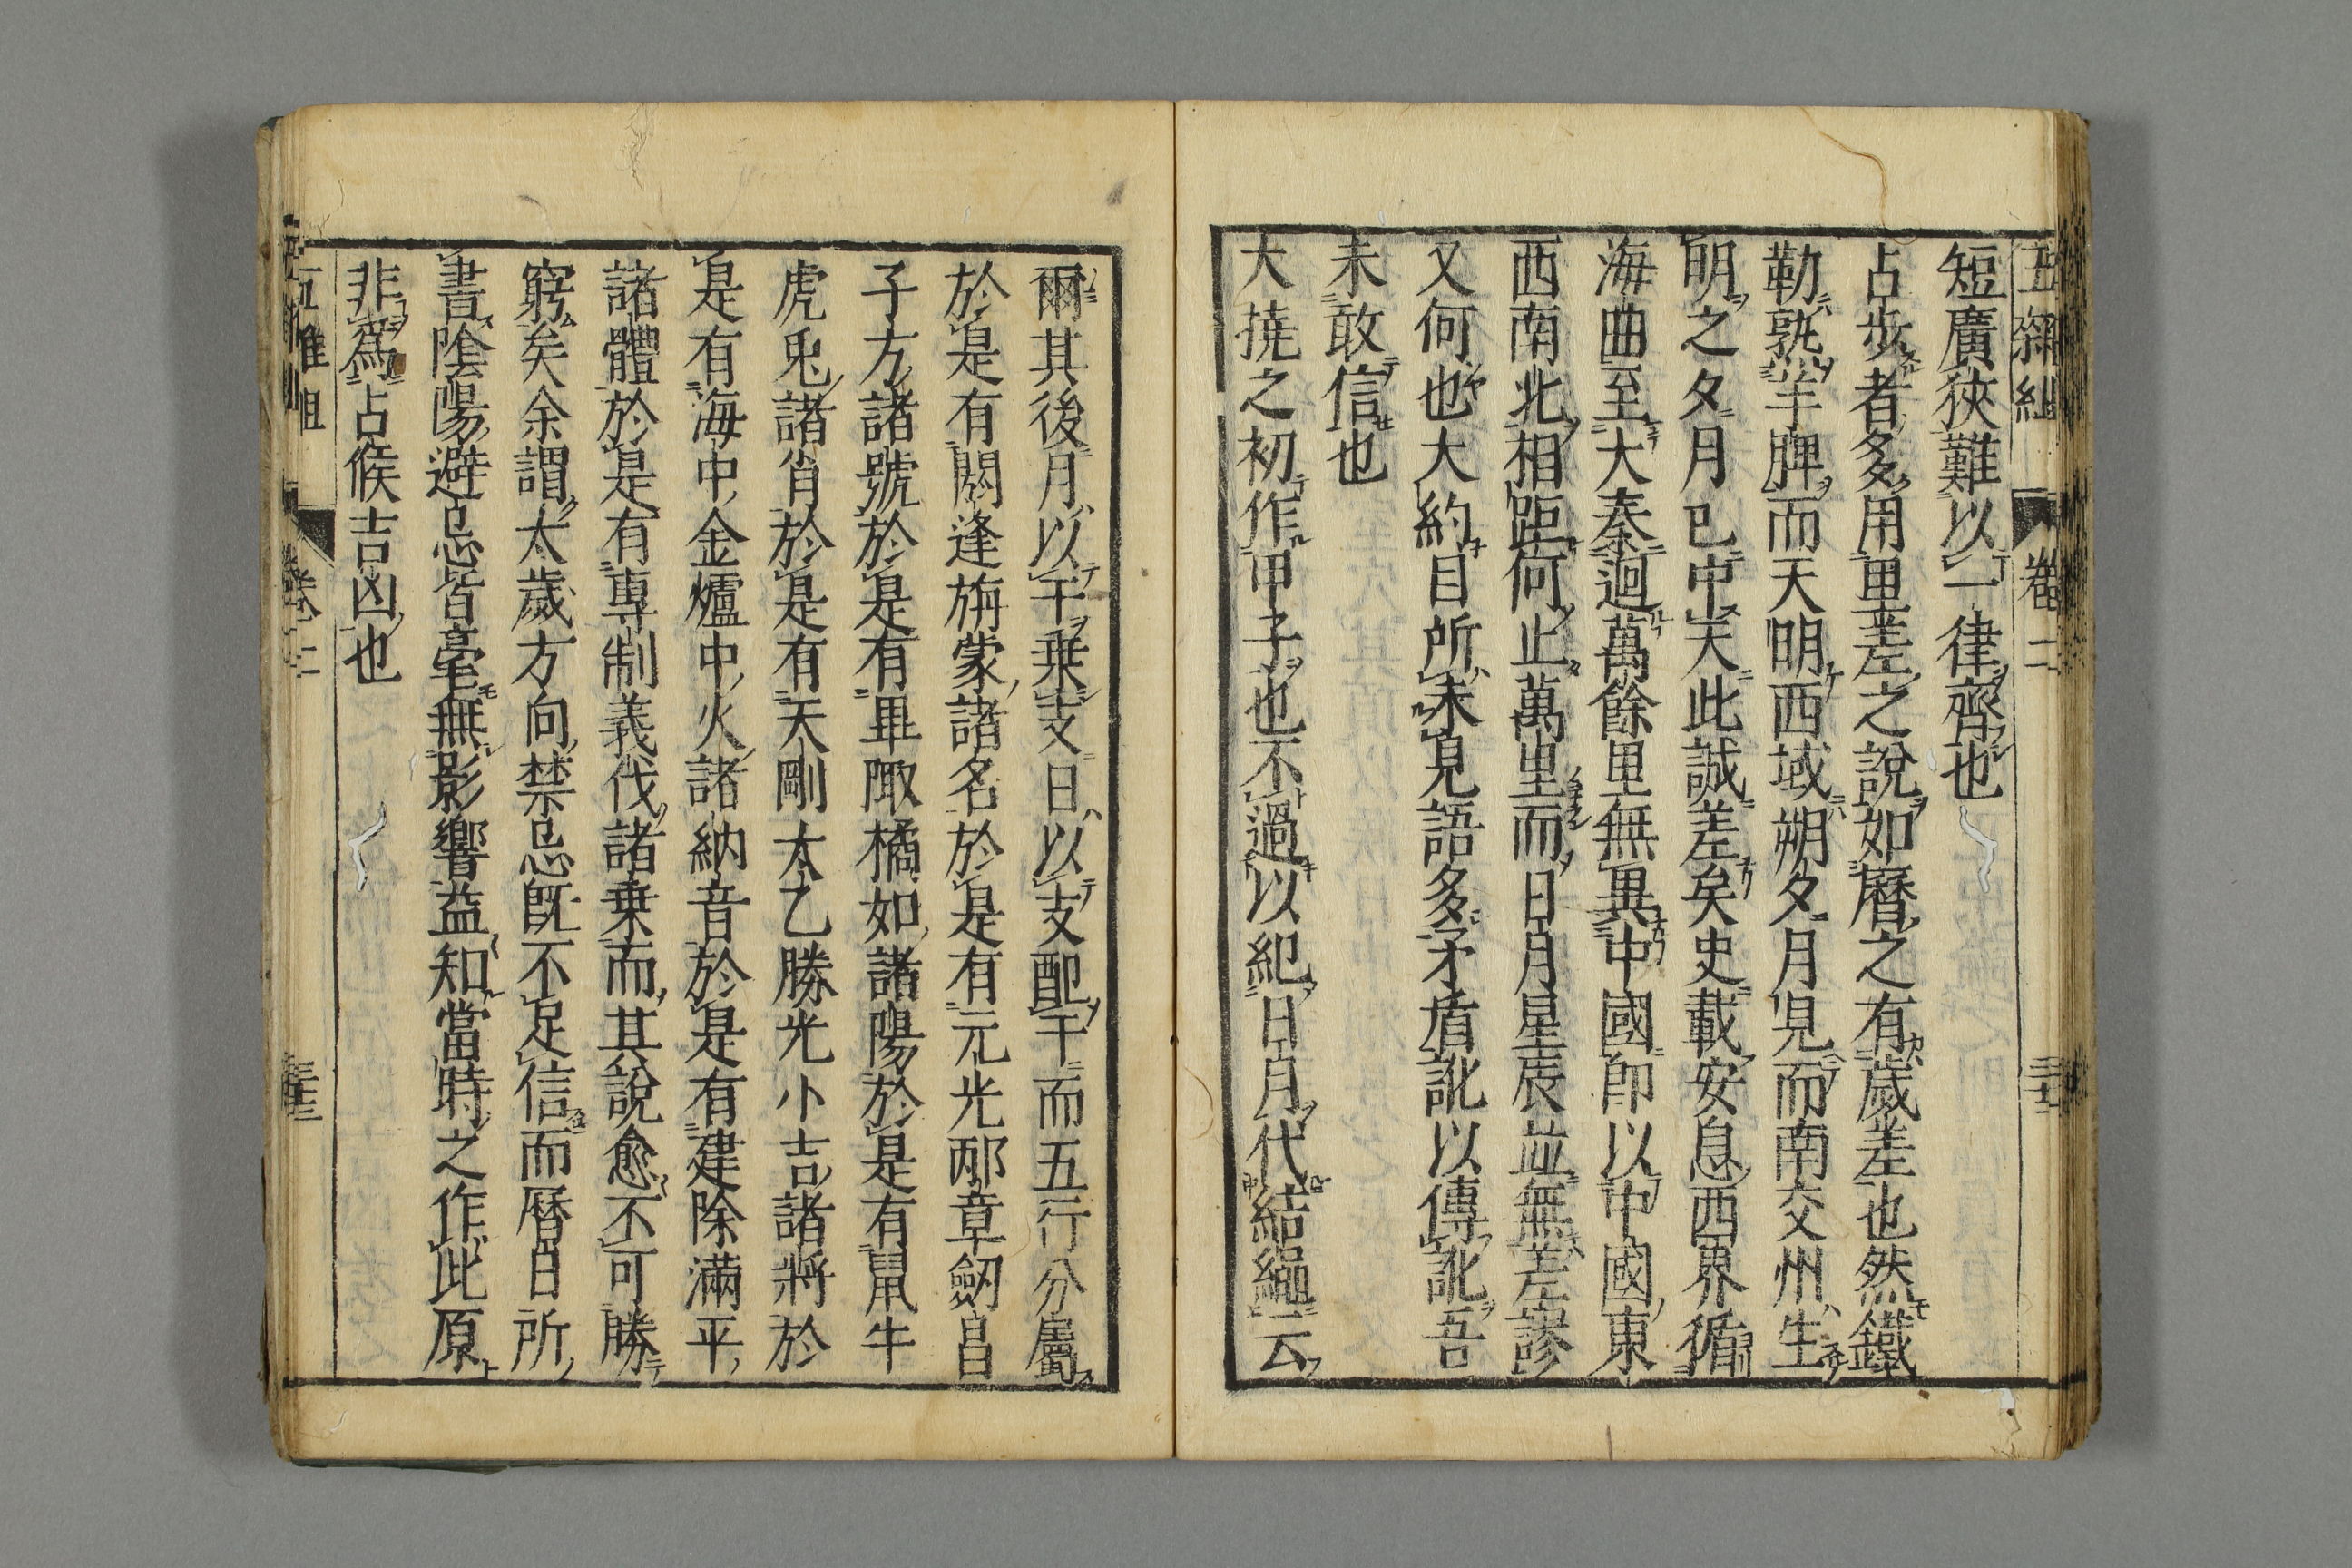 五雜組 卷二
短廣狹難以一律齊也
占歩者多用里差之說如曆之有歲差也然鐵
勒孰羊脾而天明西域朔夕月見而南交州生
明之夕月已中天此誠差矣史載安息西界循
海曲至大秦迴萬餘里無異中國卽以中國東
西南北相距何止萬里而日月星辰並無差謬
又何也大約目所未見語多矛盾訛以傳訛吾
未敢信也
大撓之初作甲子也不過以紀日月代結繩云
爾其後月以干乗支日以支配干而五行分屬
於是有閼逢旃蒙諸名於是有元光邴章劒昌
子方諸號於是有畢陬橘如諸陽於是有鼠牛
虎兎諸肖於是有天剛太乙勝光小吉諸將於
是有海中金爐中火諸納音於是有建除滿平
諸體於是有專制義伐諸乗而其說愈不可勝
窮矣余謂太歲方向禁忌旣不足信而曆日所
書陰陽避忌皆毫無影響益知當時之作此原
非爲占候吉凶也
五雜組 卷二